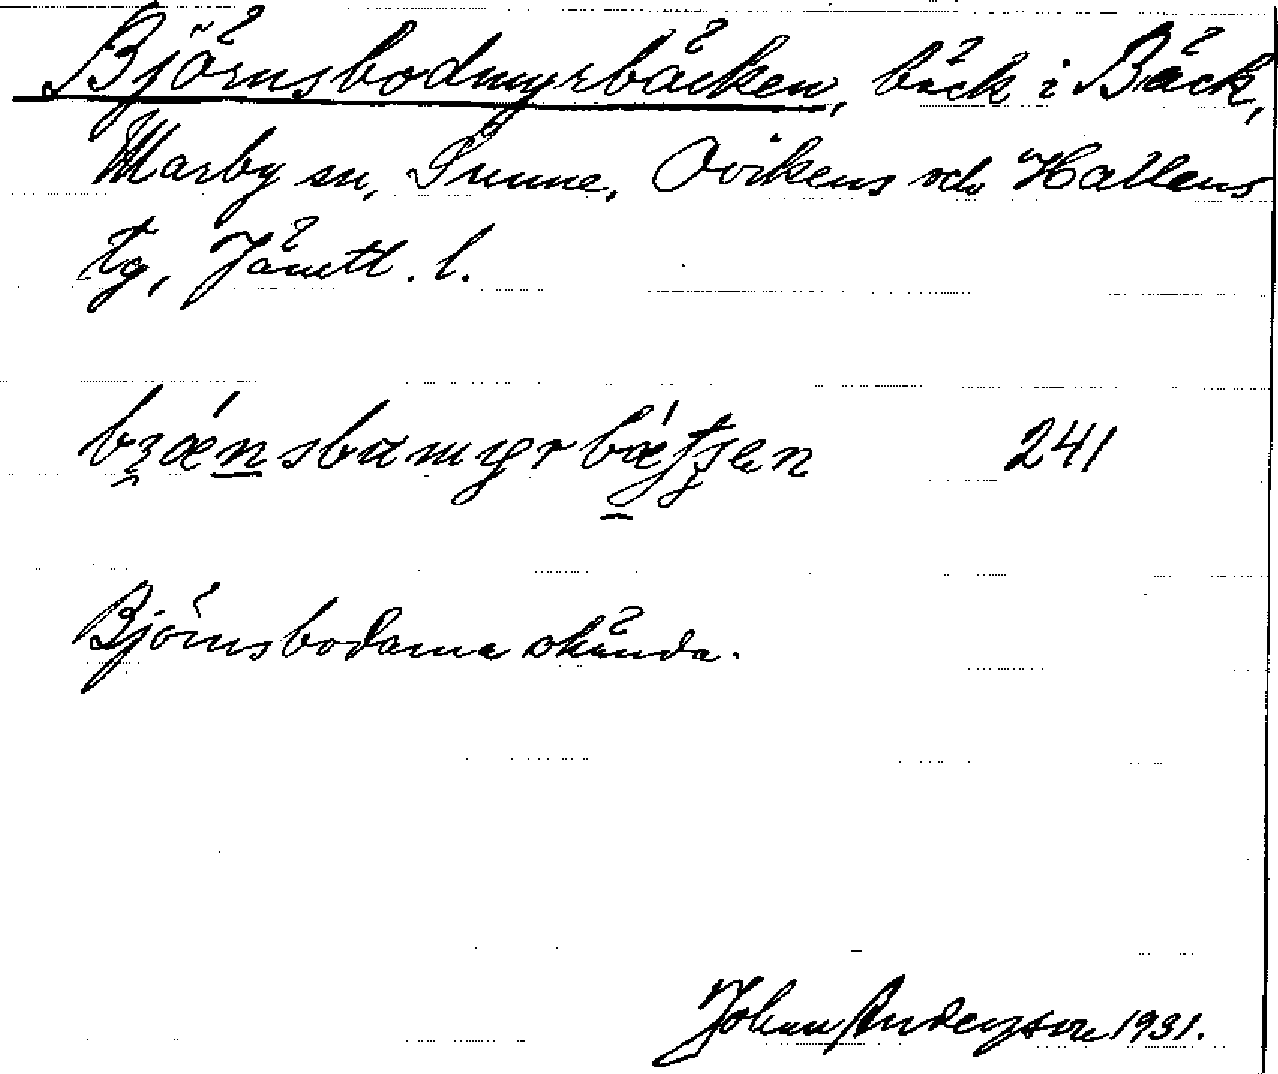 Björnsbodmyrbäcken, bäck i Bäck,
Marby sn, Sunne, Ovikens och Hallens
tg, Jämtl. l.
241
Björnsbodarna okända.
Johan Anderson 1931.